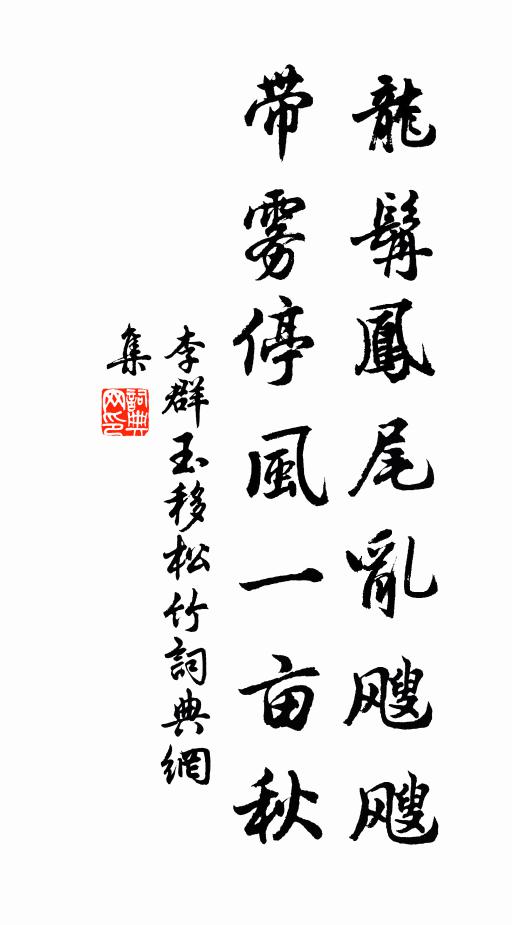 龍髯鳳尾亂颼颼
帶雾停風一亩秋
李群玉移松竹詞典網
集
詞典
网印